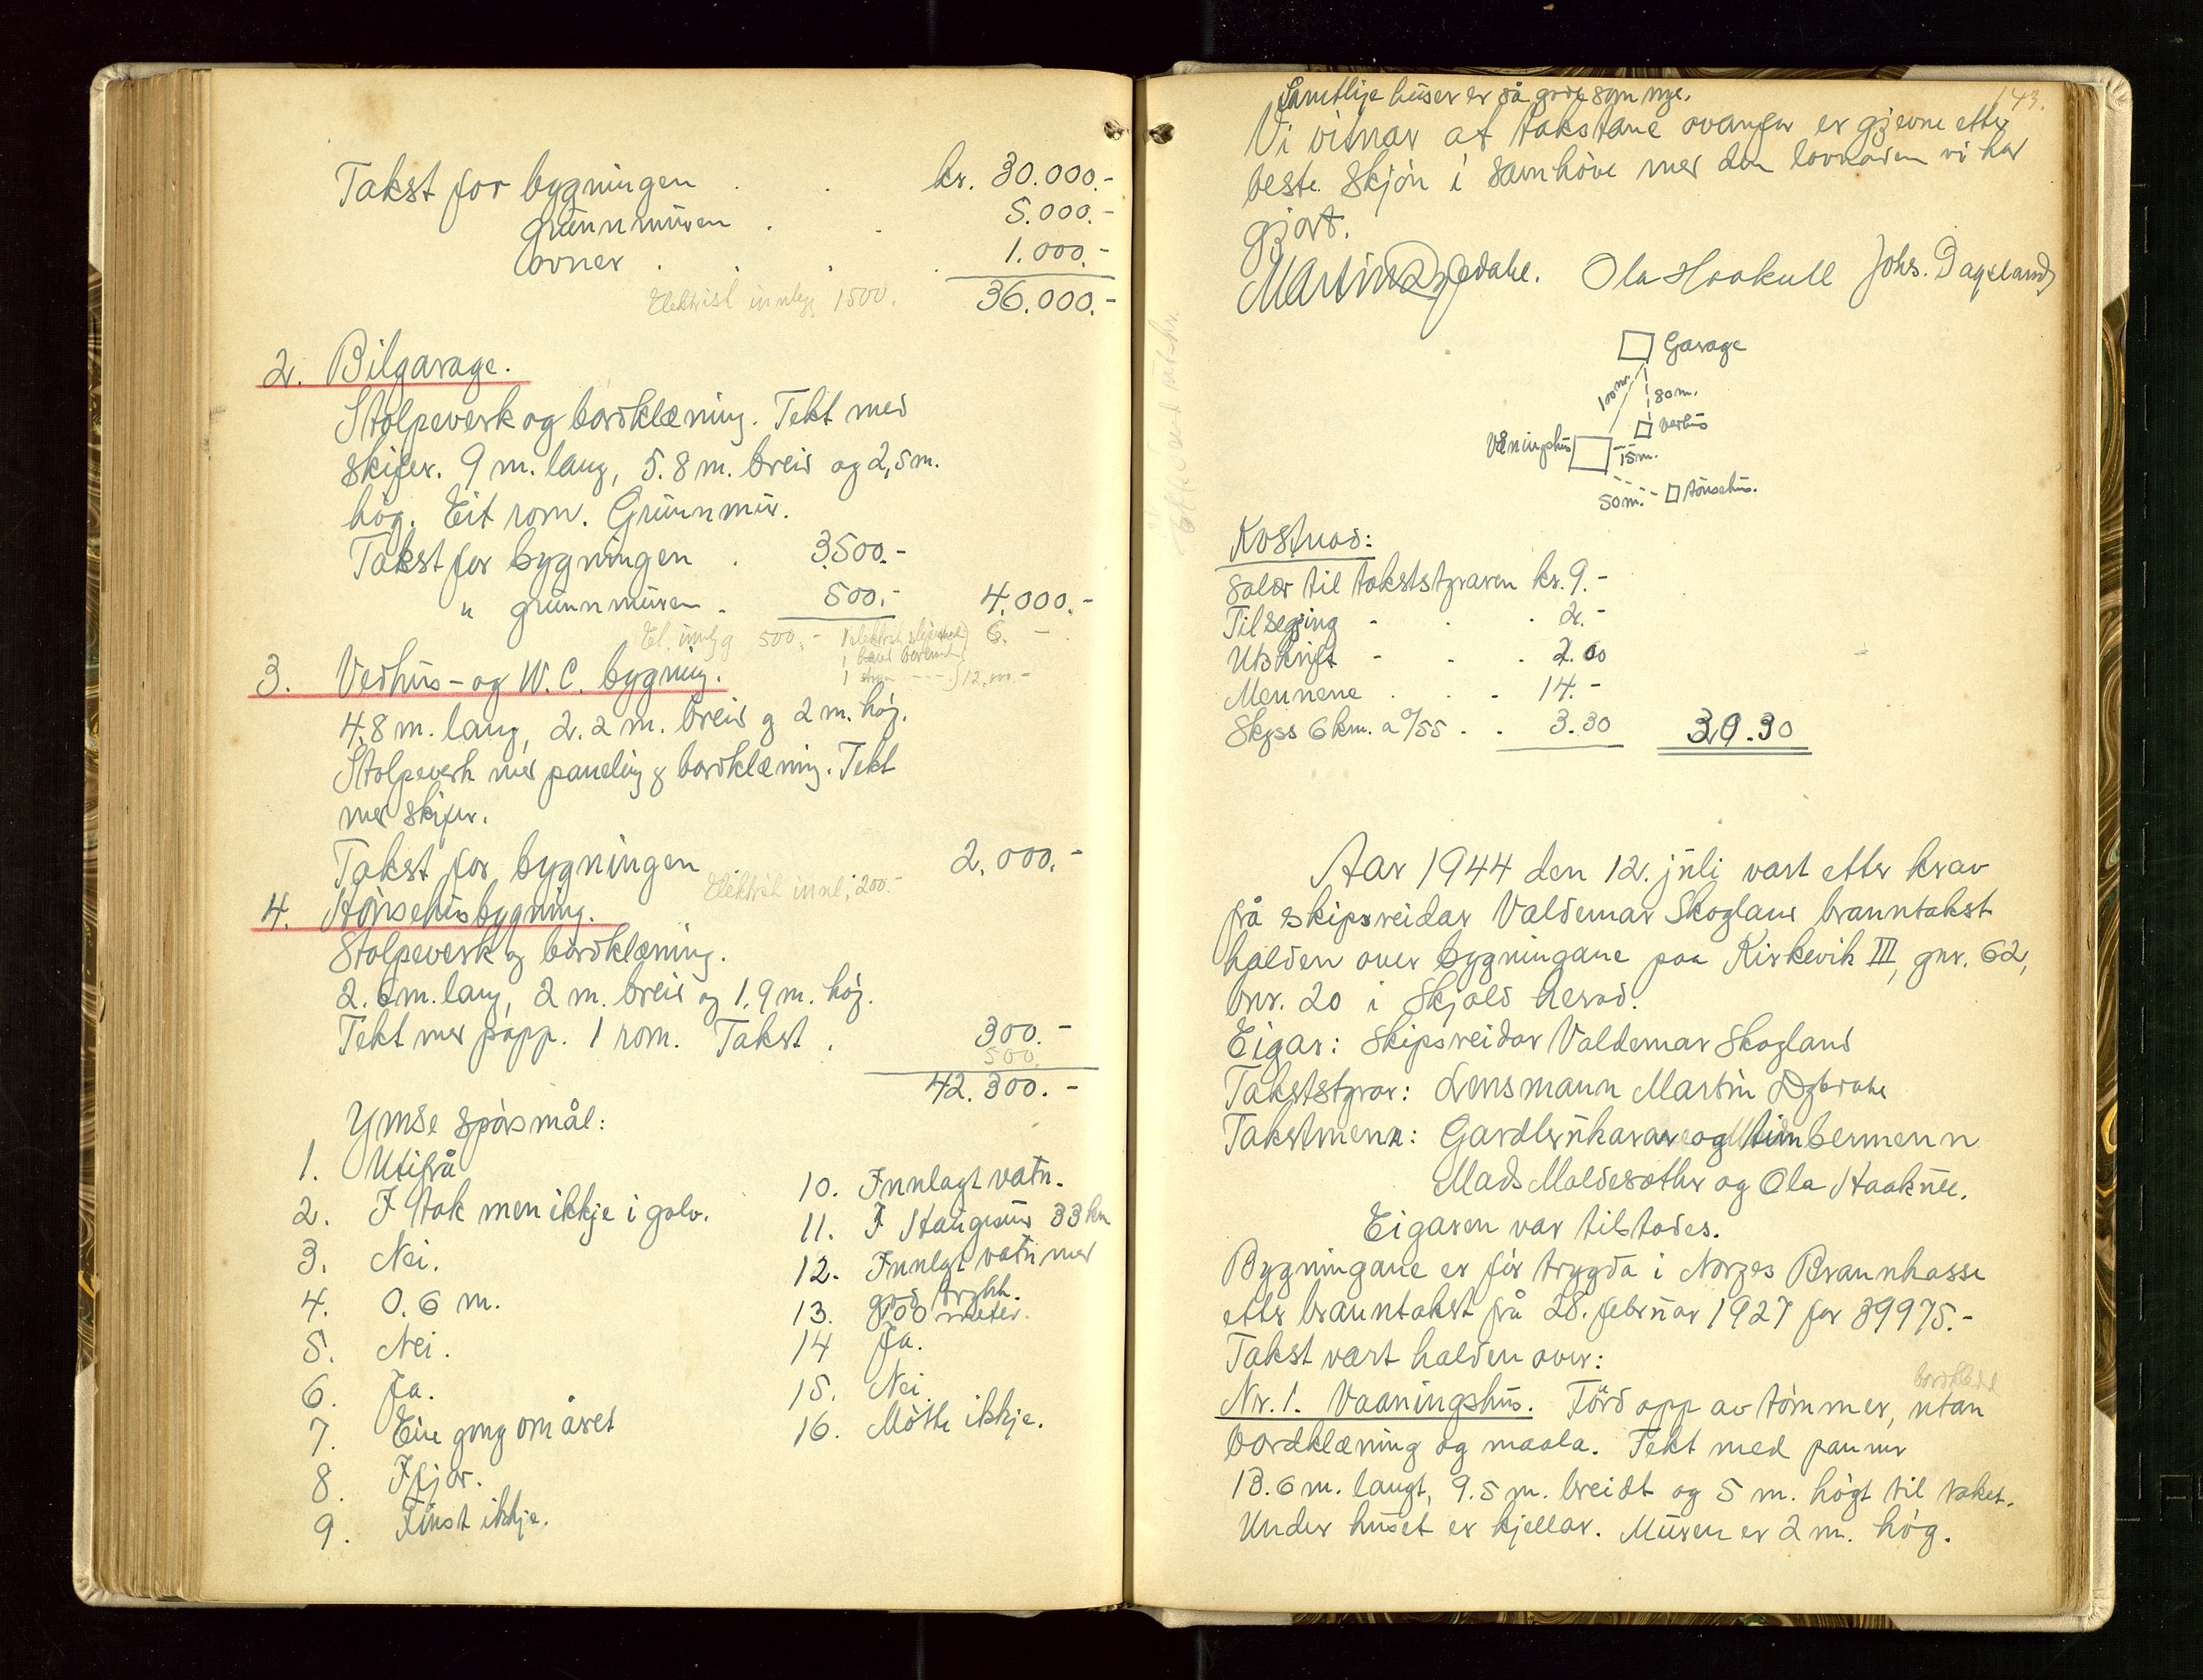 Takst for bygningen . . kr. 30.000.-
grunnmuren . . 5.000.-
ovner . . . . 1.000.-
Elektrisk innlegg 1500. 36.000.-
2. Bilgarage.
Stolpeverk og bordklæning. Tekt med
skifer. 9 m. lang, 5.8 m. breid og 2,5 m.
høg. Eit rom. Grunnmur.
Takst for bygningen . 3.500.-
" grunnmuren . 500.- 4.000.-
El. innlegg 500.- 6. -
3. Vedhus- og W.C. bygning.
4.8 m. lang, 2.2 m. breid og 2 m. høg.
Stolpeverk med paneling og bordklæning. Tekt
med skifer.
Takst for bygningen . 2.000.-
Elektrisk innl. 200.-
4. Hønsehusbygning.
Stolpeverk og bordklæning.
2.6 m. lang, 2 m. breid og 1.9 m. høg.
Tekt med papp. 1 rom. Takst . 300.-
500.
42.300.-
Ymse spørsmål:
1. Utifrå
2. I tak men ikkje i golv.
3. Nei.
4. 0.6 m.
5. Nei.
6. Ja.
7. Ein gong om året
8. Ifjor.
9. Finst ikkje.
10. Innlagt vatn.
11. I Haugesund 33 km
12. Innlagt vatn med
god trykk.
13. 100 meter.
14 Ja.
15. Nei.
16. Møtte ikkje.
143.
Samtlige huser er så gode som nye.
Vi vitnar at takstane ovanfor er gjevne etter
beste skjøn i samhøve med den lovnaden vi har
gjort.
Martin Dybdahl. Ola Haakull Johs. Dagsland
Garage
100 m. 80 m.
Vedhus
Våningshus 15 m.
50 m. Hønsehus.
Kostnad:
Salær til takststyraren kr. 9.-
Tilsegjing . . . 2.-
Utskrift . . . 2.00
Mennene . . . 14.-
Skyss 6 km. a 0/55 . . 3.30 30.30
Aar 1944 den 12. juli vart etter krav
frå skipsreidar Valdemar Skogland branntakst
halden over bygningane paa Kirkevik III, gnr. 62,
bnr. 20 i Skjold herad.
Eigar: Skipsreidar Valdemar Skogland
Takststyrar: Lensmann Martin Dybdahl
Takstmenn: Gardbrukarane og timbermenn
Mads Moldesæther og Ola Haakull.
Eigaren var tilstades.
Bygningane er før trygda i Norges Brannkasse
etter branntakst frå 28. februar 1927 for 39975.-
Takst vart halden over:
bordkledd
Nr. 1. Vaaningshus. Førd opp av tømmer, utan
bordklæning og maala. Tekt med pannner
13.6 m. langt, 9.5 m. breidt og 5 m. høgt til taket.
Under huset er kjellar. Muren er 2 m. høg.